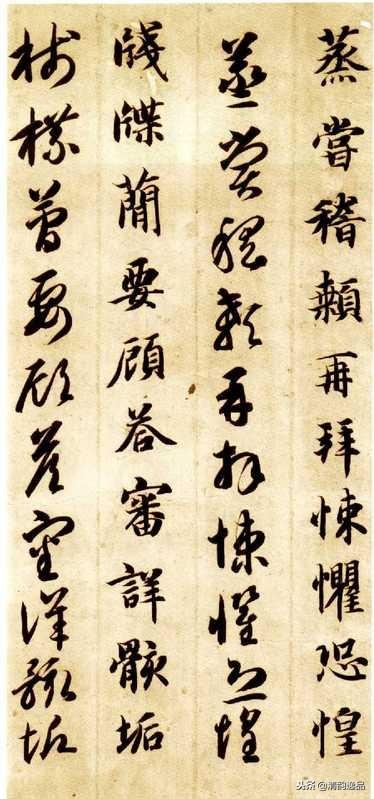 蒸嘗稽顙再拜悚懼恐惶
蒸嘗稽顙再拜悚懼恐惶
牋牒蕳要顧荅審詳骸垢
牋牒蕳要顧荅審詳骸垢
头条@清韵逸品